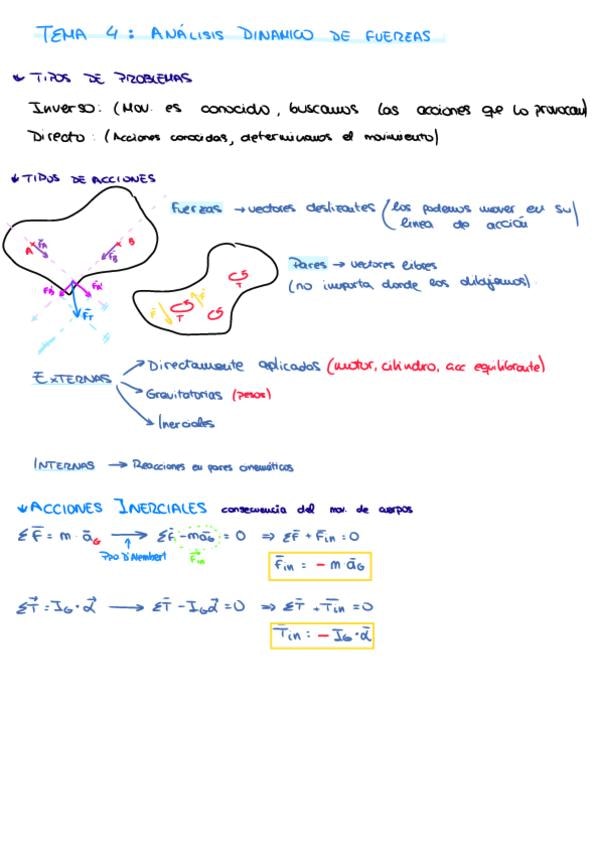 TEMA 4: ANÁLISIS DINAMICO DE FUERZAS
↓ TIPOS DE PROBLEMAS
Inverso: (Mov. es conocido, buscamos las acciones que lo provocan)
Directo: (Acciones conocidas, determinamos el movimiento)
↓ TIPOS DE ACCIONES
Fuerzas → vectores deslizantes (los podemos mover en su
línea de acción)
A F̄A F̄B B
FB' FA'
F̄T
Pares → vectores libres
(no importa donde los dibujemos)
F F T T
EXTERNAS
Directamente aplicados (motor, cilindro, acc equilibrante)
Gravitatorias (pesos)
Inerciales
INTERNAS → Reacciones en pares cinemáticos
↓ ACCIONES INERCIALES consecuencia del mov. de cuerpos
ΣF̄ = m · āG → ΣF̄ - māG = 0 ⇒ ΣF̄ + F̄in = 0
Ppo D'Alembert F̄in
F̄in = - m āG
ΣT⃗ = IG · α⃗ → ΣT̄ - IG ᾱ = 0 ⇒ ΣT̄ + T̄in = 0
T̄in = - IG · ᾱ